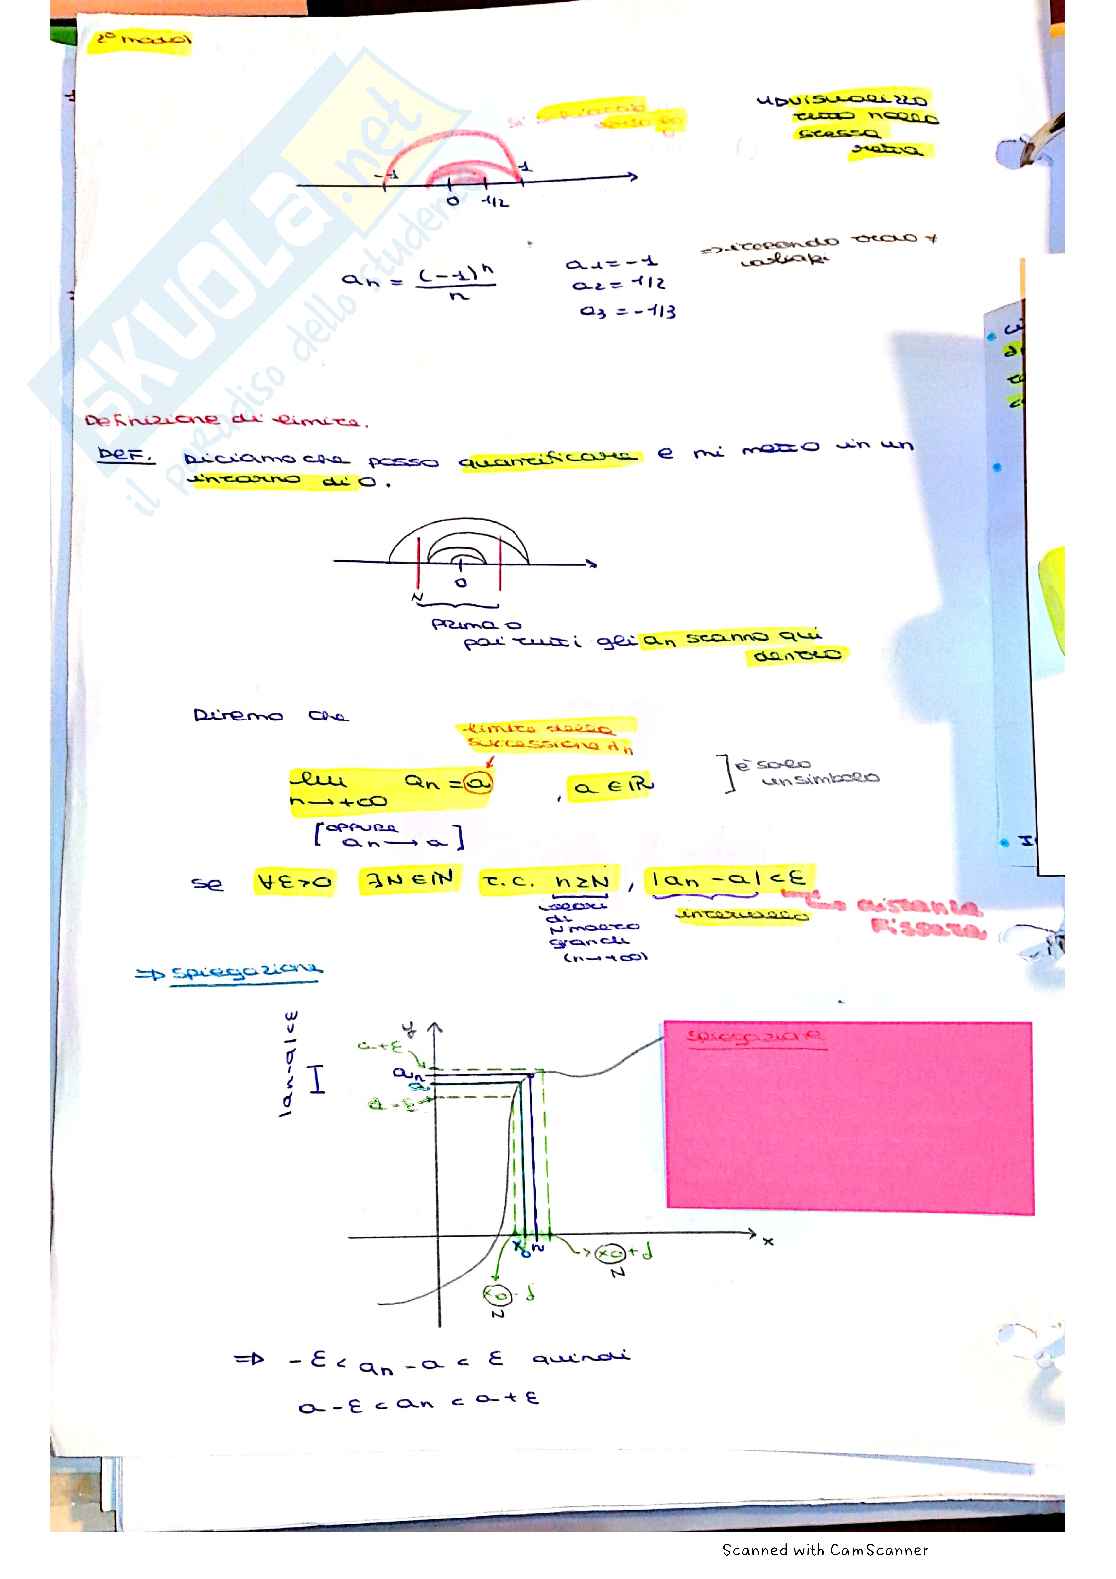 2° modo
si
visualizzo
tutto nella
stessa
retta
-1
1
0
1/2
an = (-1)^n / n
a1 = -1
a2 = 1/2
a3 = -1/3
Definizione di limite.
DEF. Diciamo che posso quantificare e mi metto in un
intorno di 0.
0
N
prima o
poi tutti gli an stanno qui
dentro
Diremo che
limite della
successione an
lim an = a , a ∈ ℝ
n → +∞
[oppure
an → a]
è solo
un simbolo
se ∀ε>0 ∃N∈ℕ t.c. n≥N, |an - a|<ε
valori
di
N molto
grandi
(n→+∞)
intervallo
distanza
fissata
⇒ spiegazione
|an-a|<ε
y
a+ε
an
a
a-ε
x0
n
x
x0+d
N
x0-d
N
spiegazione
⇒ -ε < an - a < ε quindi
a-ε < an < a+ε
SKUOLA.net
il paradiso dello studente
Scanned with CamScanner